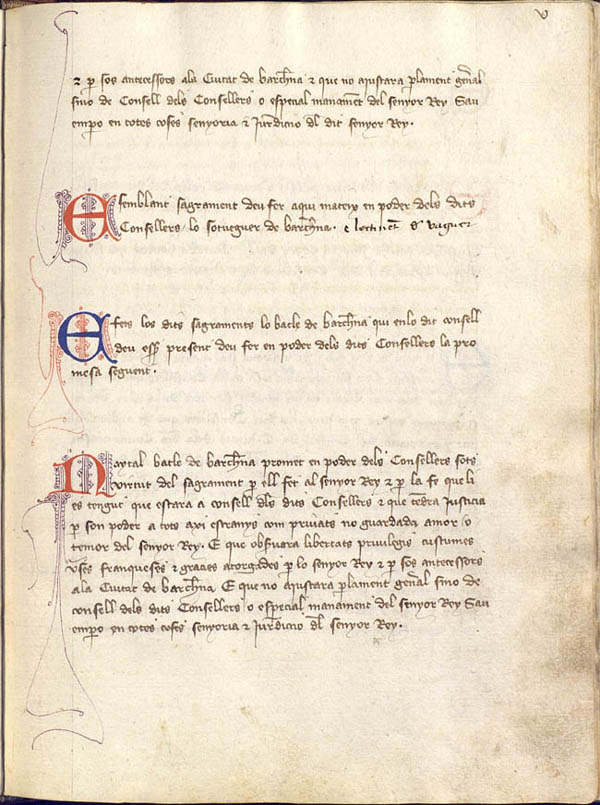 v
⁊ p sos antecessors ala Ciutat de barchna ⁊ que no aiustara plament genal
sino de Consell dels Consellers o espeçial manament del senyor Rey Sau
empero en totes coses senyoria ⁊ Jurdiccio dl dit senyor Rey .
E semblant sagrament deu fer aqui mateix en poder dels dits
Consellers lo sotsveguer de barchna . e lochtinent d veguer
E fets los dits sagraments lo batle de barchna qui enlo dit consell
deu esser present deu fer en poder dels dits Consellers la pro
mesa seguent .
N aytal batle de barchna promet en poder dels Consellers sots
virtut del sagrament p ell fet al senyor Rey ⁊ p la fe que li
es tengut que estara a consell dls dits Consellers ⁊ que tendra Justicia
p son poder a tots axi estranys com priuats no guardada amor o
temor del senyor Rey . E que obseruara libertats priuilegis custumes
vses franqueses ⁊ gracies atorgades p lo senyor Rey ⁊ p sos antecessors
ala Ciutat de barchna E que no aiustara plament genal sino de
consell dels dits Consellers o espeçial manament del senyor Rey Sau
empero en totes coses senyoria ⁊ Jurdiccio dl senyor Rey .